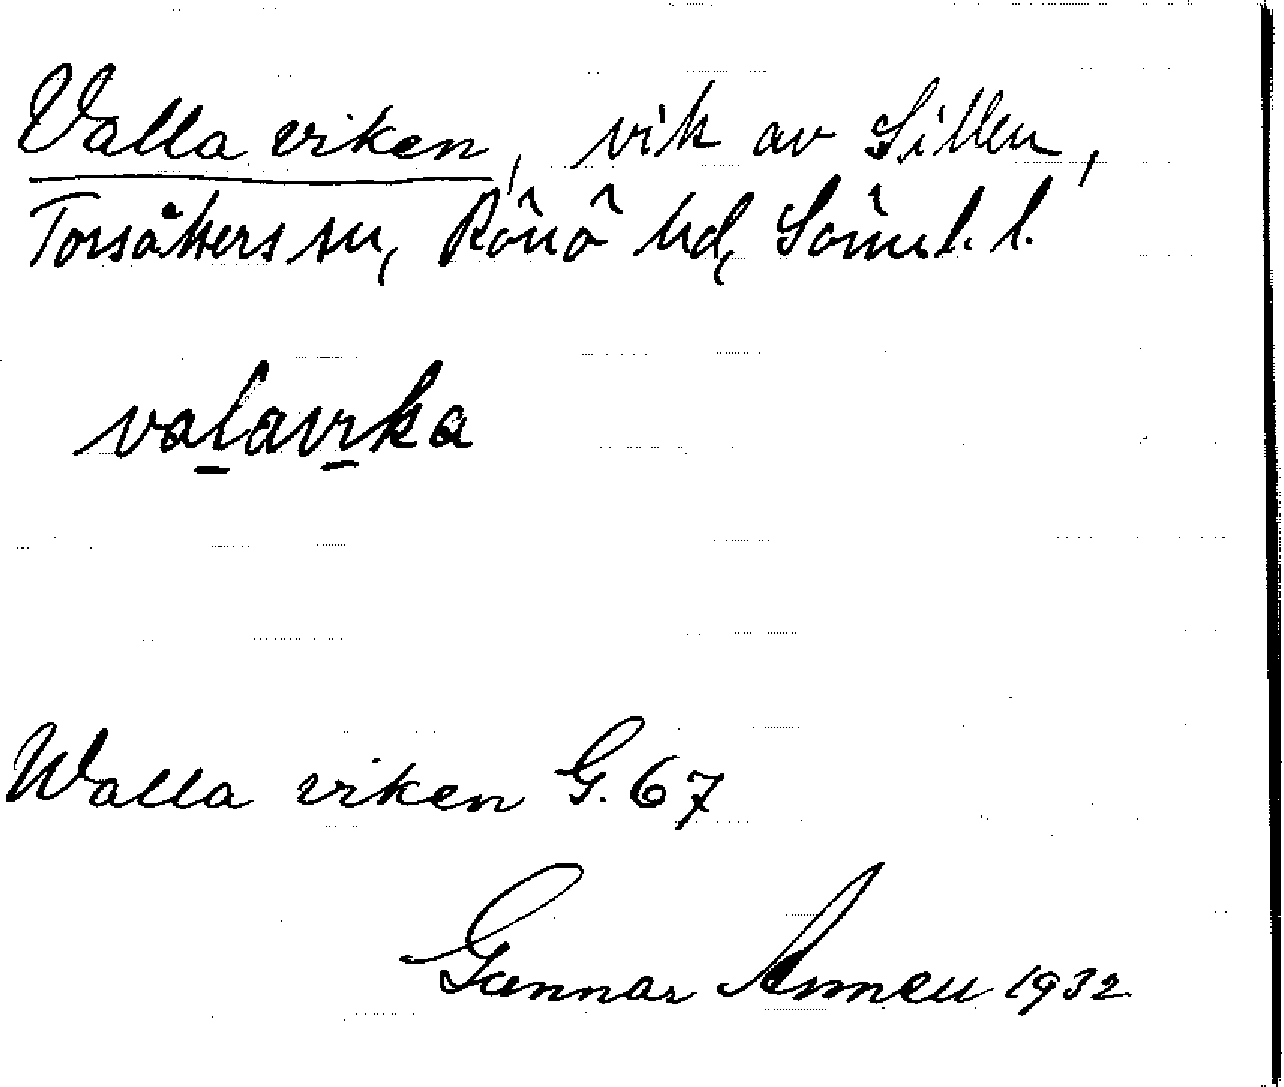 Valla viken, vik av Sillen,
Torsåkers sn, Rönö hd, Söderm. l.
valavika
Walla viken G. 67
Gunnar 1932